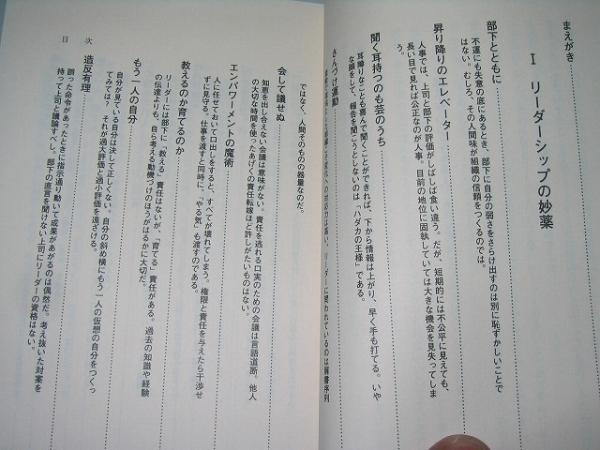 まえがき
I リーダーシップの妙薬
部下とともに
不運にも失意の底にあるとき、部下に自分の弱さをさらけ出すのは別に恥ずかしいことで
はない。むしろ、その人間味が組織の信頼をつくるのでは。
昇り降りのエレベーター
人事では、上司と部下の評価がしばしば食い違う。だが、短期的には不公平に見えても、
長い目で見れば公正なのが人事。目前の地位に固執していては大きな機会を見失ってしま
う。
聞く耳持つのも芸のうち
耳障りなことも喜んで聞くことができれば、下から情報は上がり、早く手も打てる。いや
な顔をして、報告を聞こうとしないのは「ハダカの王様」である。
さんづけ運動
ではなく、人間そのものの器量なのだ。
会して議せぬ
知恵を出し合えない会議は意味がない。責任を逃れる口実のための会議は言語道断。他人
の大切な時間を使ったあげくの責任転嫁ほど許しがたいものはない。
エンパワーメントの魔術
人に任せておいて口出しをすると、すべてが壊れてしまう。権限と責任を与えたら干渉せ
ずに見守る。仕事を渡すと同時に、「やる気」も渡すのである。
教えるのか育てるのか
リーダーには部下に「教える」責任はないが、「育てる」責任がある。過去の知識や経験
の伝達よりも、自ら考える動機づけのほうがはるかに大切だ。
もう一人の自分
自分が見ている自分は決して正しくない。自分の斜め横にもう一人の仮想の自分をつくっ
てみては？ それが過大評価と過小評価を遠ざける。
造反有理
誤った命令があったときに指示通り動いて成果があがるのは偶然だ。考え抜いた対案を
持って上司と議論すべし。部下の直言を聞けない上司にリーダーの資格はない。
目 次